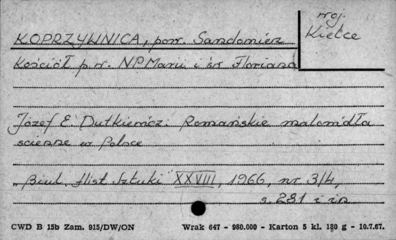 woj.
Kielce
KOPRZYWNICA, pow. Sandomierz
Kościół p.w. NPMarii i św Floriana
Józef E. Dutkiewicz: Romańskie malowidła
ścienne w Polsce
„Biul. Hist. Sztuki" XXVIII, 1966, nr 3/4,
s. 231 i in.
CWD B 15b Zam. 915/DW/ON Wrak 647 - 980.000 - Karton 5 kl. 180 g - 10.7.67.